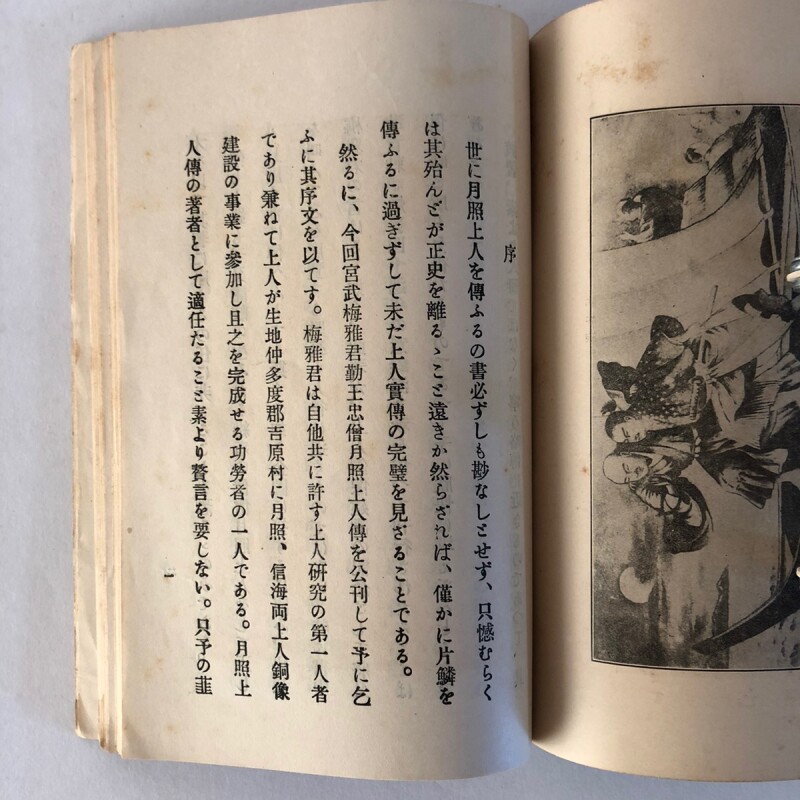 序
世に月照上人を傳ふるの書必ずしも尠なしとせず、只憾むらく
は其殆んどが正史を離るゝこと遠きか然らざれば、僅かに片鱗を
傳ふるに過ぎずして未だ上人實傳の完璧を見ざることである。
然るに、今回宮武梅雅君勤王忠僧月照上人傳を公刊して予に乞
ふに其序文を以てす。梅雅君は自他共に許す上人研究の第一人者
であり兼ねて上人が生地仲多度郡吉原村に月照、信海両上人銅像
建設の事業に參加し且之を完成せる功勞者の一人である。月照上
人傳の著者として適任たること素より贅言を要しない。只予の韮
一